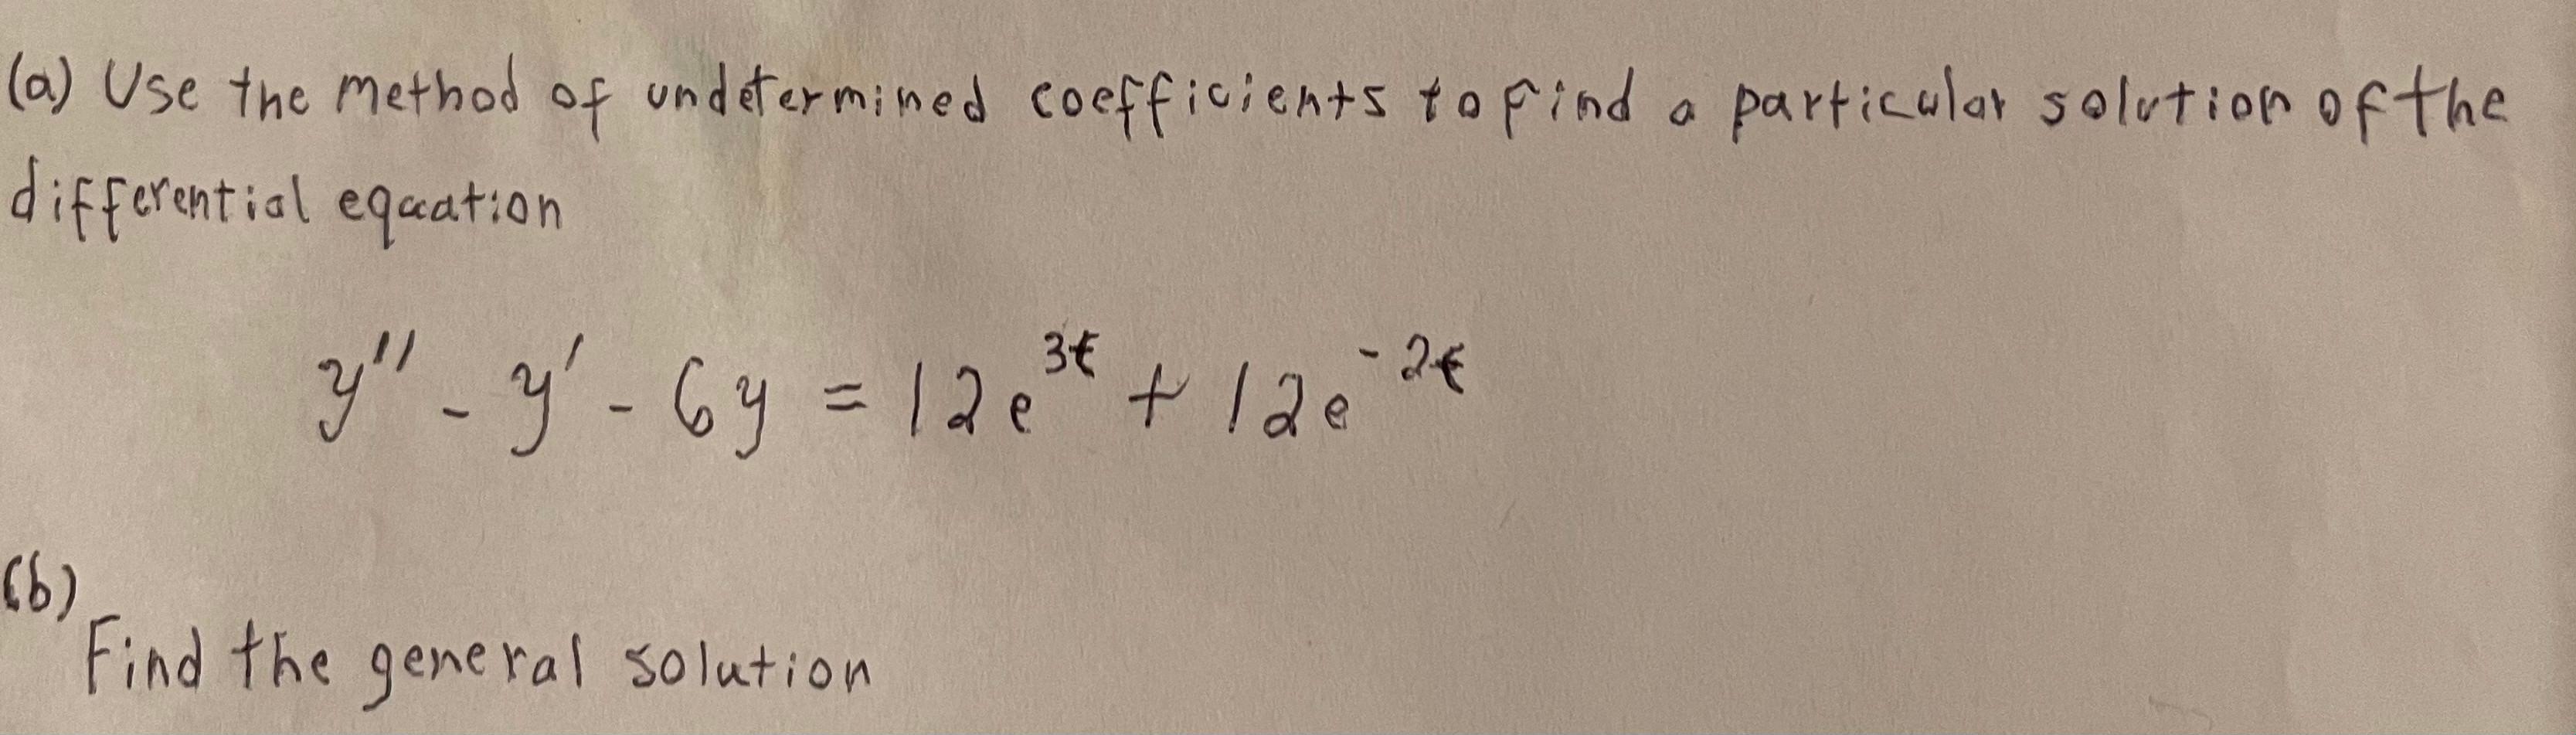 (a) Use the method of undetermined coefficients to find a particular solution of the
differential equation
y'' - y' - 6y = 12e^{3t} + 12e^{-2t}
(b)
Find the general solution